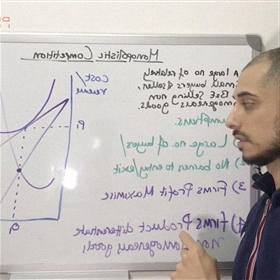 Monopolistic Competition
Cost/
revenue
A large no of relatively
small buyers & sellers,
selling non
homogeneous goods.
Large no of buyers/
2) No barriers to entry/exit
3) Firms Profit Maximise
4) Firms Product differentiate
non homogenous goods,
P
Q